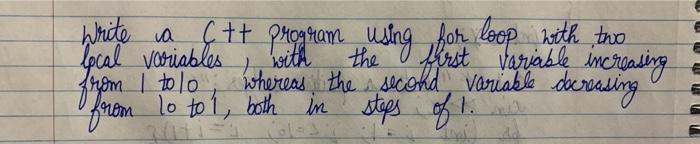 Write a C++ program using for loop with two
local variables, with the first variable increasing
from 1 to 10, whereas the second variable decreasing
from 10 to 1, both in steps of 1.